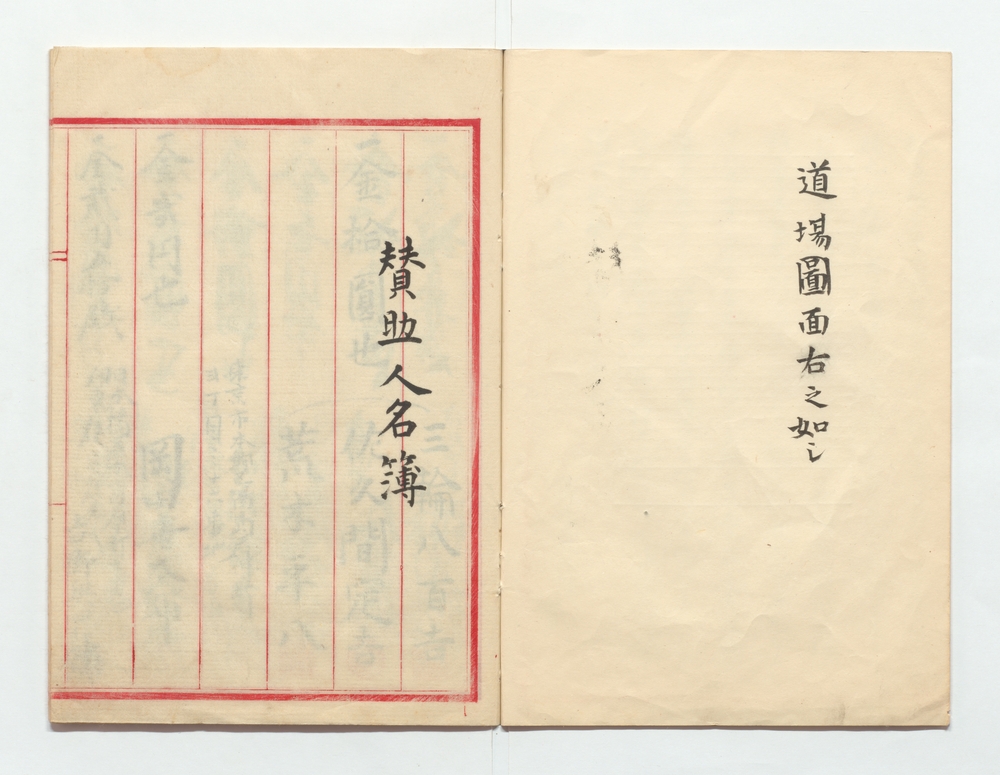 道場圖面右之如し
賛助人名簿